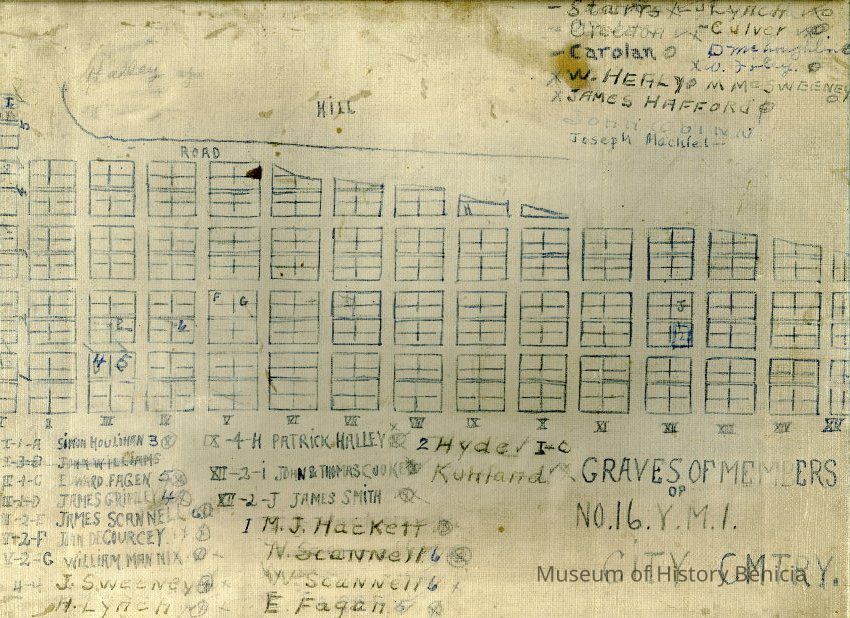 Starrs Lynch
Creedon Culver
Carolan
W. HEALY M MCSWEENEY
JAMES HAFFORD
Joseph
Halley
HILL
ROAD
H
F G J
2 6 12
4 5
I II III IV V VI VII VIII IX X XI XII XIII XIV XV
I-1-A SIMON HOULIHAN 3 IX-4-H PATRICK HALLEY 2 Hyde I-C
JOHN WILLIAMS
EDWARD FAGEN 5 XII-2-I JOHN & THOMAS COOKE Kuhland GRAVES OF MEMBERS
JAMES GRIMLEY 4 XII-2-J JAMES SMITH OF
JAMES SCANNELL 6 NO. 16. Y.M.I.
JOHN DECOURCEY 1 M. J. Hackett
V-2-G WILLIAM MANNIX N. Scannell 6
CITY CMTRY.
4-4 J. SWEENEY W Scannell 6
Museum of History Benicia
H. Lynch E. Fagan 5